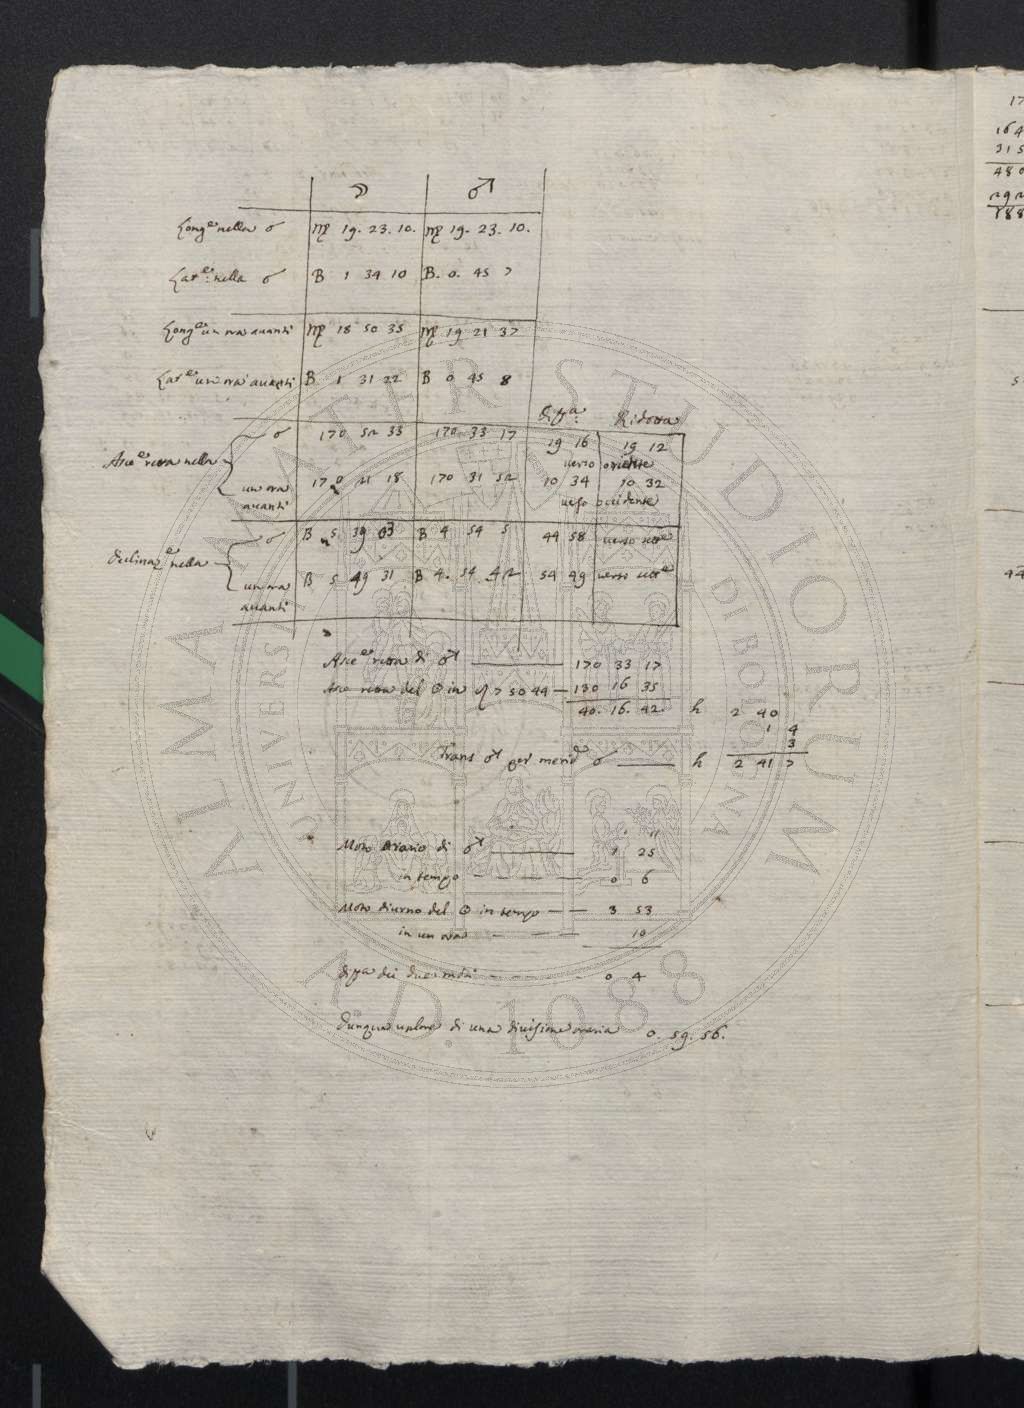 ☽ ♂
Long.e nella ☌ ♍ 19. 23. 10. ♍ 19. 23. 10.
Lat.e nella ☌ B 1 34 10 B. 0. 45 7
Long.e un ora avanti ♍ 18 50 35 ♍ 19 21 37
Lat.e un ora avanti B 1 31 22 B 0 45 8
diffa Ridotta
Asce. retta nella ☌ 170 52 33 170 33 17 19 16 19 12
verso oriente
un ora avanti 170 21 18 170 31 52 10 34 10 32
verso occidente
Declinaz.e nella ☌ B 5 39 03 B 4 54 5 44 58 verso sette
un ora avanti B 5 49 31 B 4. 54 42 54 49 verso sette
Asce. retta di ♂ 170 33 17
Asce retta del ☉ in ♌ 7 50 44 — 130 16 35
40. 16. 42 h 2 40
1 4
3
Trans ♂ per merid. ☌ h 2 41 7
Moto orario di ♂ 1 25
in tempo 0 6
Moto diurno del ☉ in tempo — — 3 53
in un ora 10
diffa dei due moti 0 4
dunque valore di una divisione oraria 0. 59. 56.
17
164
315
480
292
188
5
44
ALMA MATER STUDIORUM
UNIVERSITÀ DI BOLOGNA
A.D. 1088